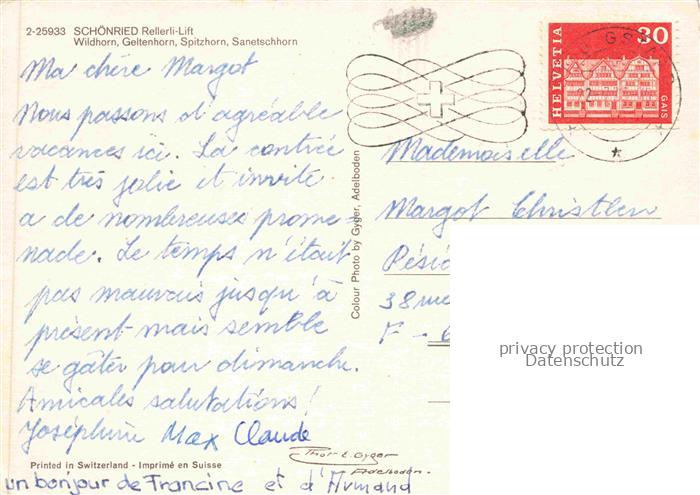 2-25933 SCHÖNRIED Rellerli-Lift
Wildhorn, Geltenhorn, Spitzhorn, Sanetschhorn
Ma chère Margot
Nous passons d'agréable
vacances ici. La contrée
est très jolie et invite
a de nombreuses prome=
nade. Le temps n'était
pas mauvais jusqu'à
présent mais semble
se gâter pour dimanche.
Amicales salutations!
Joséphine Max Claude
un bonjour de Francine et d'Armand
Printed in Switzerland - Imprimé en Suisse
Colour Photo by Gyger, Adelboden
Thor E. Gyger
Adelboden.
HELVETIA
30
GAIS
Mademoiselle
Margot Christlen
Rési
38 rue
F -
privacy protection
Datenschutz